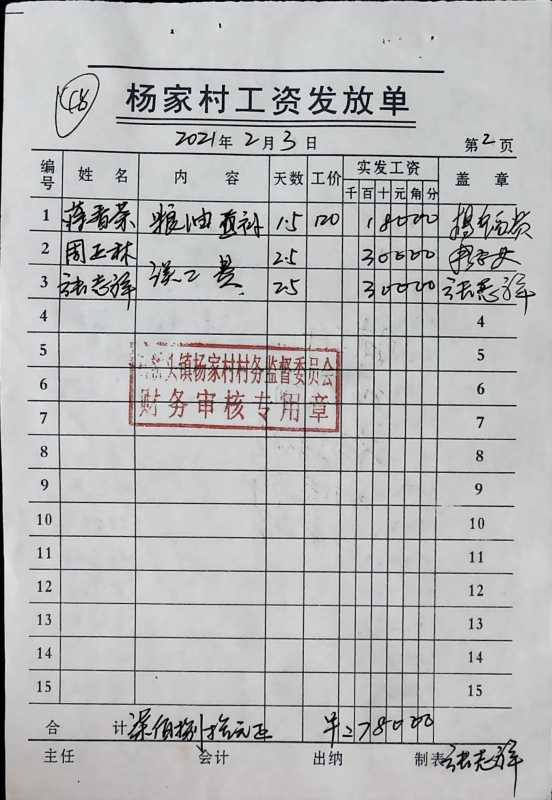 杨家村工资发放单
2021年2月3日 第2页
编号 姓名 内容 天数 工价 实发工资 盖章
千 百 十 元 角 分
1 蒋香荣 粮油 1.5 120 18000
2 周正林 2.5 30000
3 张志祥 误工 2.5 30000 张志祥
4 4
5 5
6 6
7 7
8 8
9 9
10 10
11 11
12 12
13 13
14 14
15 15
头镇杨家村村务监督委员会
财务审核专用章
合计 柒佰捌拾元正 ¥78000
主任 会计 出纳 制表 张志祥